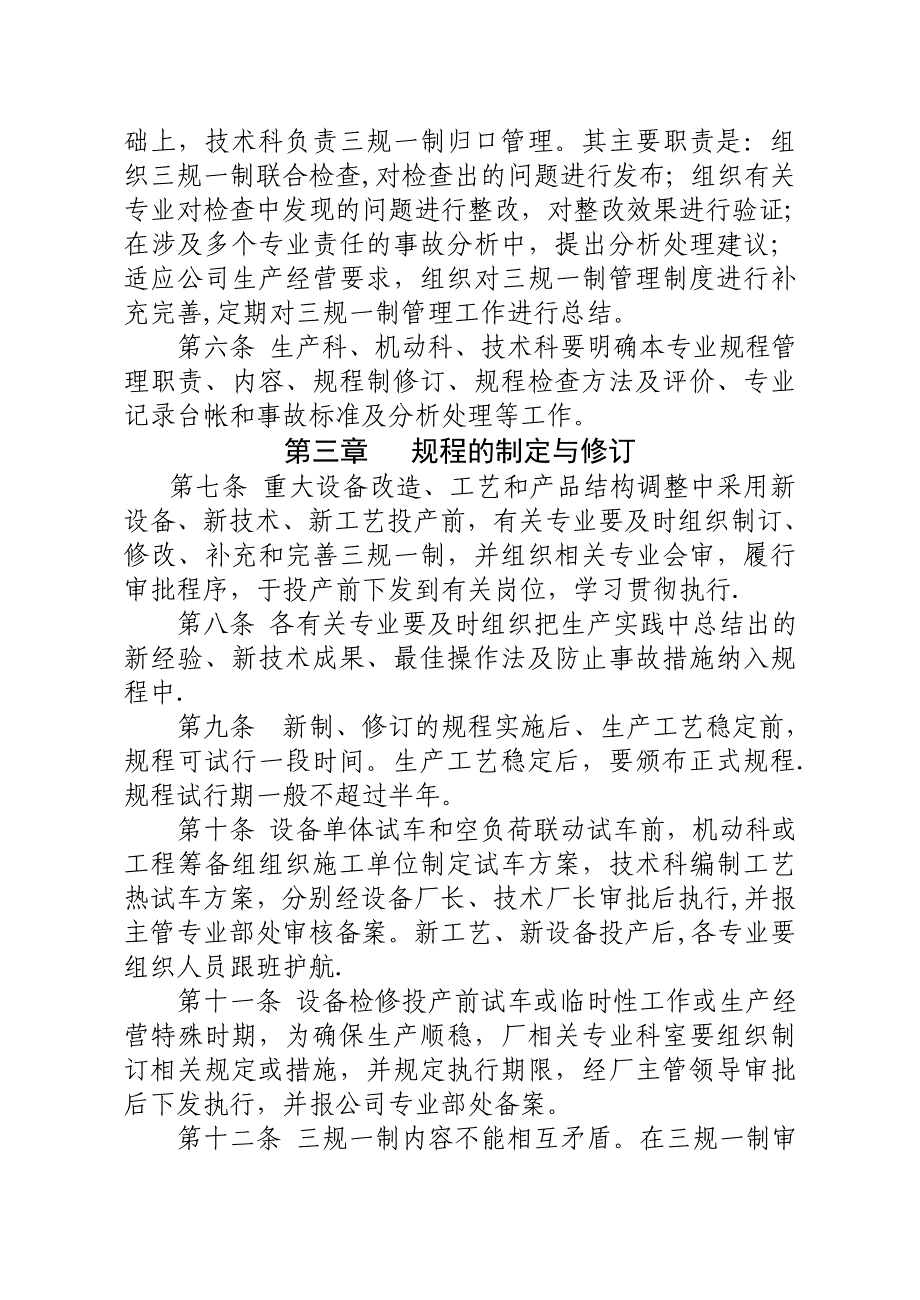 础上，技术科负责三规一制归口管理。其主要职责是：组
织三规一制联合检查,对检查出的问题进行发布；组织有关
专业对检查中发现的问题进行整改，对整改效果进行验证；
在涉及多个专业责任的事故分析中，提出分析处理建议；
适应公司生产经营要求，组织对三规一制管理制度进行补
充完善,定期对三规一制管理工作进行总结。
第六条 生产科、机动科、技术科要明确本专业规程管
理职责、内容、规程制修订、规程检查方法及评价、专业
记录台帐和事故标准及分析处理等工作。
第三章 规程的制定与修订
第七条 重大设备改造、工艺和产品结构调整中采用新
设备、新技术、新工艺投产前，有关专业要及时组织制订、
修改、补充和完善三规一制，并组织相关专业会审，履行
审批程序，于投产前下发到有关岗位，学习贯彻执行.
第八条 各有关专业要及时组织把生产实践中总结出的
新经验、新技术成果、最佳操作法及防止事故措施纳入规
程中.
第九条 新制、修订的规程实施后、生产工艺稳定前，
规程可试行一段时间。生产工艺稳定后，要颁布正式规程.
规程试行期一般不超过半年。
第十条 设备单体试车和空负荷联动试车前，机动科或
工程筹备组组织施工单位制定试车方案，技术科编制工艺
热试车方案，分别经设备厂长、技术厂长审批后执行,并报
主管专业部处审核备案。新工艺、新设备投产后,各专业要
组织人员跟班护航.
第十一条 设备检修投产前试车或临时性工作或生产经
营特殊时期，为确保生产顺稳，厂相关专业科室要组织制
订相关规定或措施，并规定执行期限，经厂主管领导审批
后下发执行，并报公司专业部处备案。
第十二条 三规一制内容不能相互矛盾。在三规一制审